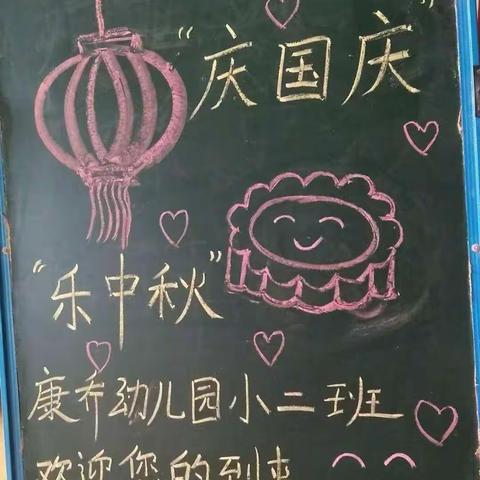 “庆国庆”
“乐中秋”
康乔幼儿园小二班
欢迎您的到来